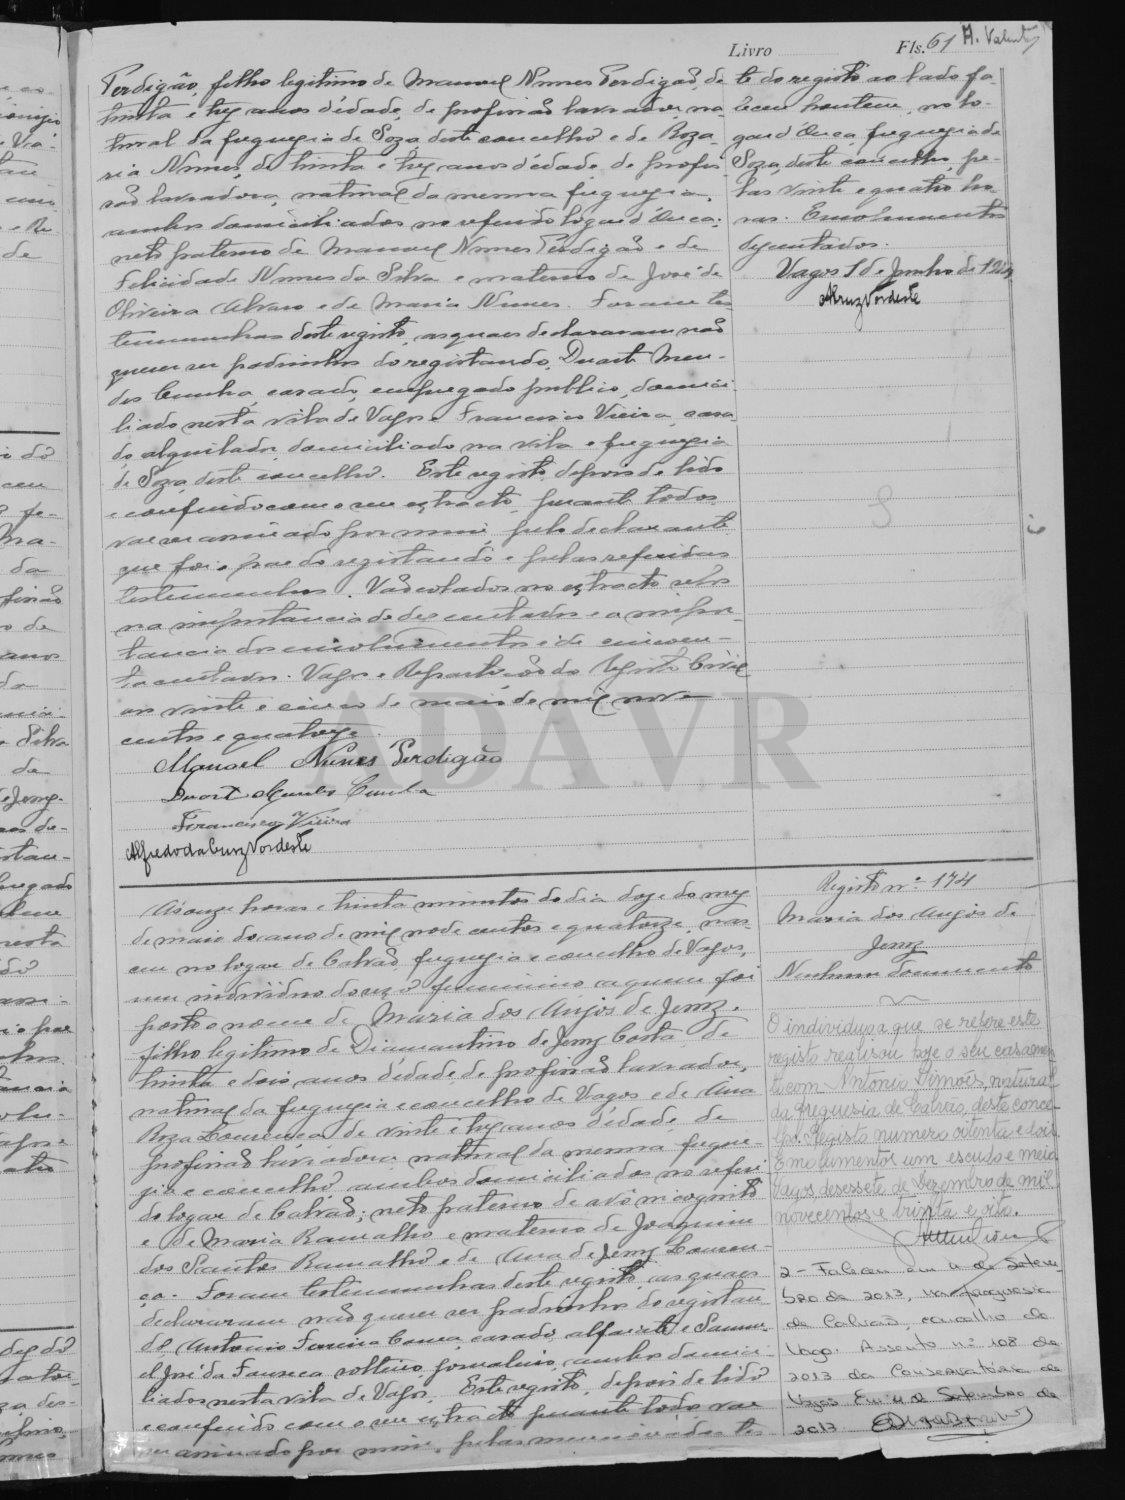 Livro Fls. 61 A. Valente
Perdigão, filho legitimo de Manuel Nunes Perdigão, de
trinta e tres anos d'idade, de profissão lavrador na
tural da freguezia de Soza deste concelho e de Roza
ria Nunes, de trinta e tres anos d'idade, de profis
são lavradora, natural da mesma freguezia,
ambos domiciliados no referido logar d'Ouca;
neto paterno de Manuel Nunes Perdigão e de
Felicidade Nunes da Silva e materno de José de
Oliveira Alvaro e de Maria Nunes. Foram tes
temunhas deste registo, as quaes declararam não
querer ser padrinhos do registando, Duarte Men-
des Cunha, casado, empregado publico, domici
liado nesta vila de Vagos e Francisco Vieira, casa
do alquilador, domiciliado na vila e freguezia
de Soza, deste concelho. Este registo, depois de lido
e conferido com o seu extracto, perante todos
vae ser assinado por mim, pelo declarante
que foi o pae do registando e pelas referidas
testemunhas. Vão colados no extracto selos
na importancia de dez centavos e a impor
tancia dos emolumentos é de cincoen-
ta centavos. Vagos e Repartição do Registo Civil
aos vinte e cinco de maio de mil nove
centos e quatorze.
Manoel Nunes Perdigão
Duarte Mendes Cunha
Francisco Vieira
Alfredo da Cruz Nordeste
te do registo ao lado fa
leceu hontem, no lo-
gar d'Ouca, freguezia de
Soza, deste concelho, pe-
las vinte e quatro ho
ras. Emolumentos
dez centavos.
Vagos 1 de Junho de
ACruz Nordeste
ADAVR
Ás onze horas e trinta minutos do dia doze do mez
de maio do ano de mil nove centos e quatorze, nas-
ceu no logar de Calvão, freguezia e concelho de Vagos,
um individuo do sexo feminino a quem foi
posto o nome de Maria dos Anjos de Jesus,
filho legitimo de Diamantino de Jesus Costa de
trinta e dois anos d'idade, de profissão lavrador,
natural da freguezia e concelho de Vagos e de Ana
Roza Lourença de vinte e tres anos d'idade, de
profissão lavradora natural da mesma fregue-
zia e concelho, ambos domiciliados no referi
do logar de Calvão; neto paterno de avô incognito
e de Maria Ramalho e materno de Joaquim
dos Santos Ramalho e de Ana de Jesus Louren-
ça. Foram testemunhas deste registo, as quaes
declararam não querer ser padrinhos do registan
do, Antonio casado, alfaiate e Samu-
el José da Fonseca, solteiro, jornaleiro, ambos domici-
liados nesta vila de Vagos. Este registo, depois de lido
e conferido com o seu extracto perante todos vae
ser assinado por mim, pelas mencionadas tes
Registo n.º 174
Maria dos Anjos de
Jesus
Nenhum documento
O individuo a que se refere este
registo realisou hoje o seu casamen
to com Antonio Simões, natural
da freguesia de Calvão, deste conce-
lho. Registo numero oitenta e dois.
Emolumentos um escudo e meio.
Vagos desessete de Dezembro de mil
novecentos e trinta e oito.
2 - Faleceu em 11 de Setem-
bro de 2013, na freguesia
de Calvão, concelho de
Vagos. Assento n.º 108 de
2013 da Conservatória de
Vagos. Em 11 de Setembro de
2013